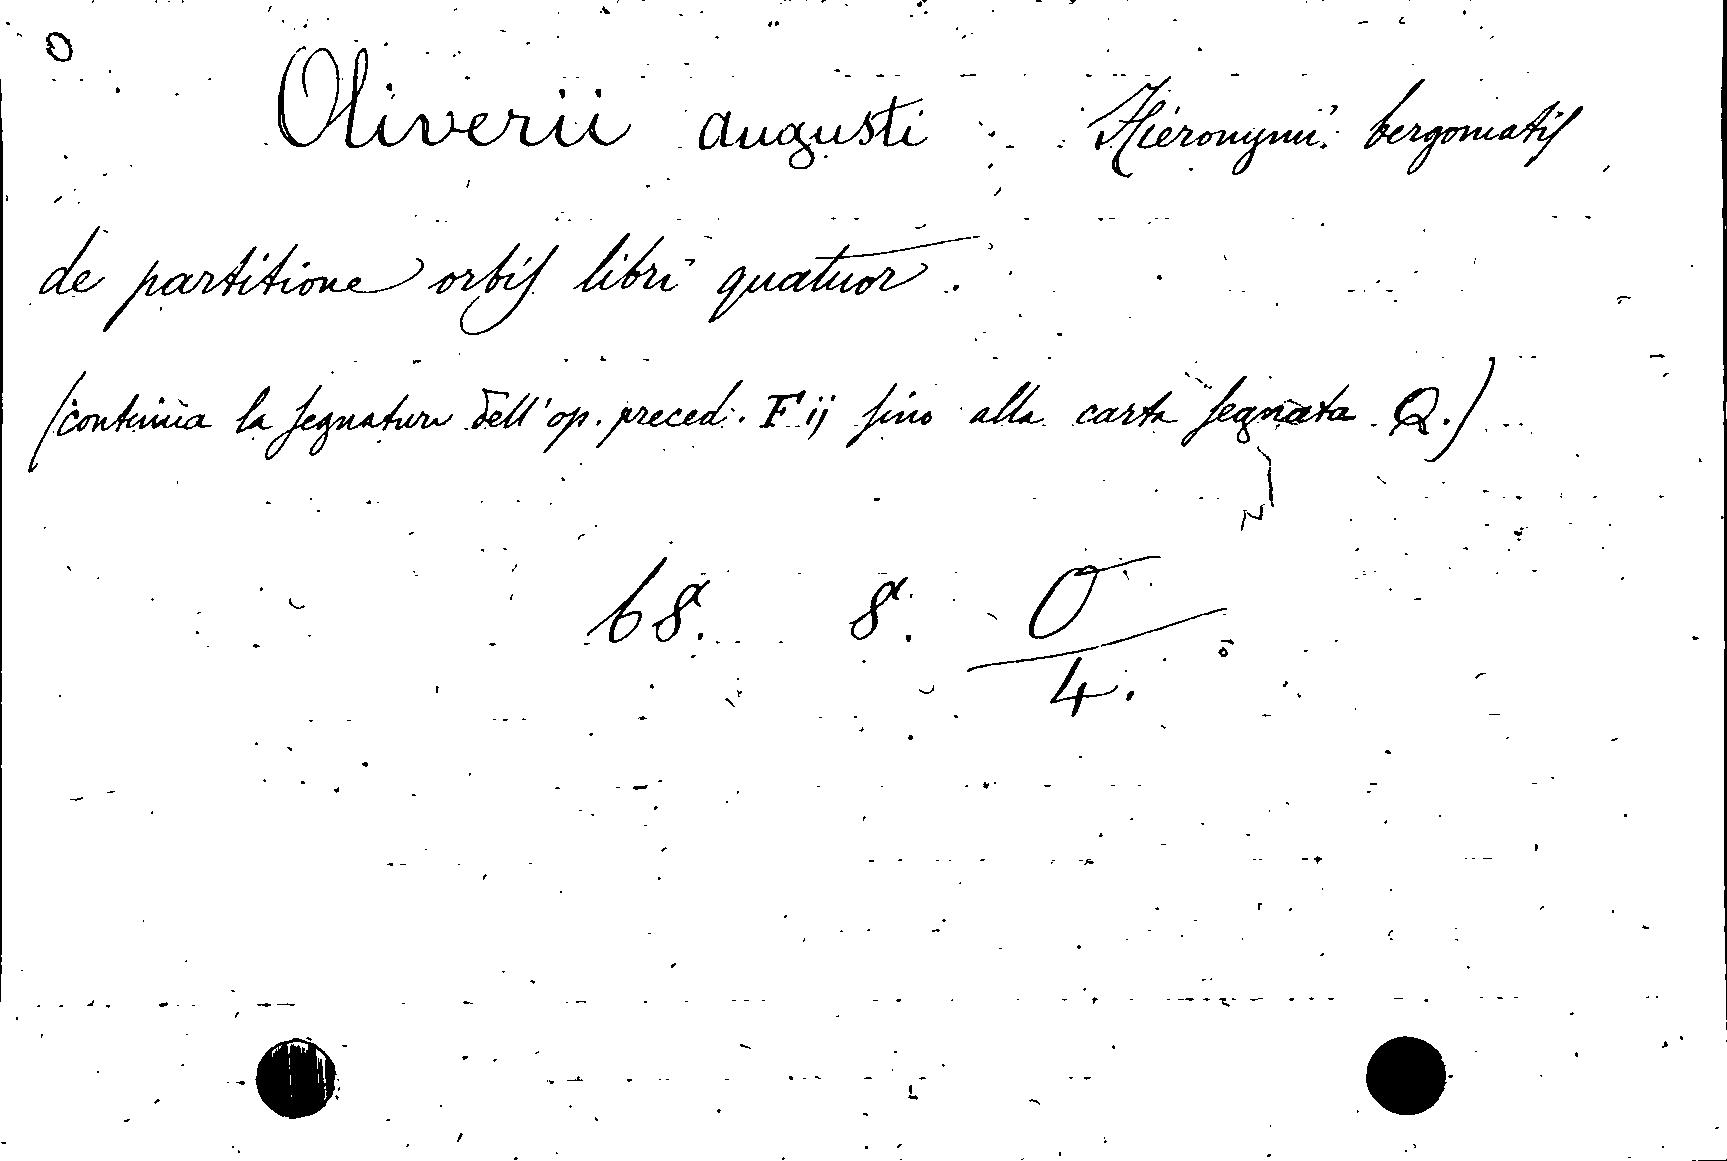 O
Oliverii augusti Hieronymi. bergomatis
de partitione orbis libri quatuor.
(continua la segnatura dell'op. preced. F ij fino alla carta segnata Q.)
68. 8. O
4.